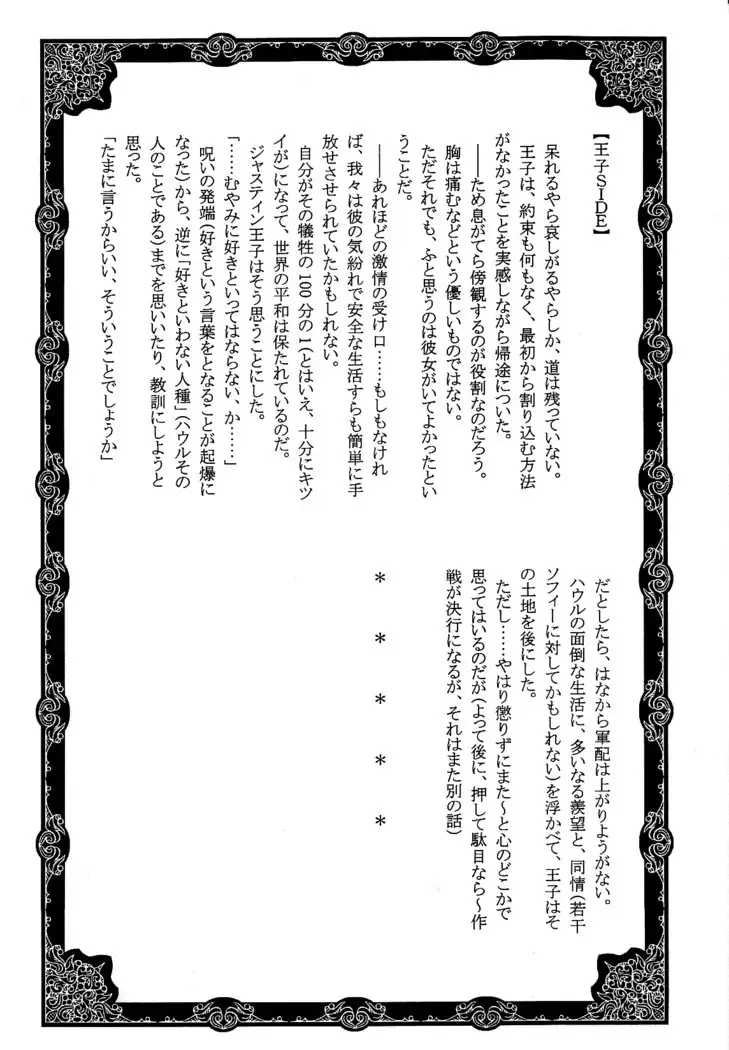 【王子SIDE】
呆れるやら哀しがるやらしか、道は残っていない。
王子は、約束も何もなく、最初から割り込む方法
がなかったことを実感しながら帰途についた。
――ため息がてら傍観するのが役割なのだろう。
胸は痛むなどという優しいものではない。
ただそれでも、ふと思うのは彼女がいてよかったとい
うことだ。
――あれほどの激情の受け口……もしもなけれ
ば、我々は彼の気紛れで安全な生活すらも簡単に手
放せさせられていたかもしれない。
自分がその犠牲の100分の1(とはいえ、十分にキツ
イが)になって、世界の平和は保たれているのだ。
ジャスティン王子はそう思うことにした。
「……むやみに好きといってはならない、か……」
呪いの発端(好きという言葉をとなることが起爆に
なった)から、逆に「好きといわない人種」(ハウルその
人のことである)までを思いいたり、教訓にしようと
思った。
「たまに言うからいい、そういうことでしょうか」
だとしたら、はなから軍配は上がりようがない。
ハウルの面倒な生活に、多いなる羨望と、同情(若干
ソフィーに対してかもしれない)を浮かべて、王子はそ
の土地を後にした。
ただし……やはり懲りずにまた～と心のどこかで
思ってはいるのだが(よって後に、押して駄目なら～作
戦が決行になるが、それはまた別の話)
＊　＊　＊　＊　＊